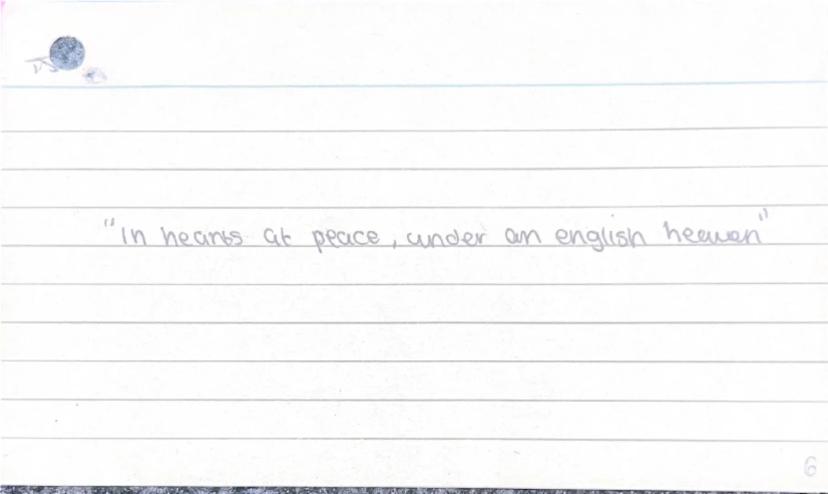 "In hearts at peace, under an english heaven"
6